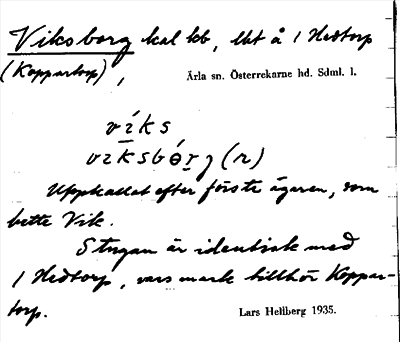 Viksborg kal kb, lht å 1 Hedtorp
(Koppartorp),
Ärla sn. Österrekarne hd. Sdml. l.
víks
viksbórg (r)
Uppkallat efter förste ägaren, som
hette Vik.
Stugan är identisk med
1 Hedtorp, vars mark tillhör Koppar-
torp.
Lars Hellberg 1935.